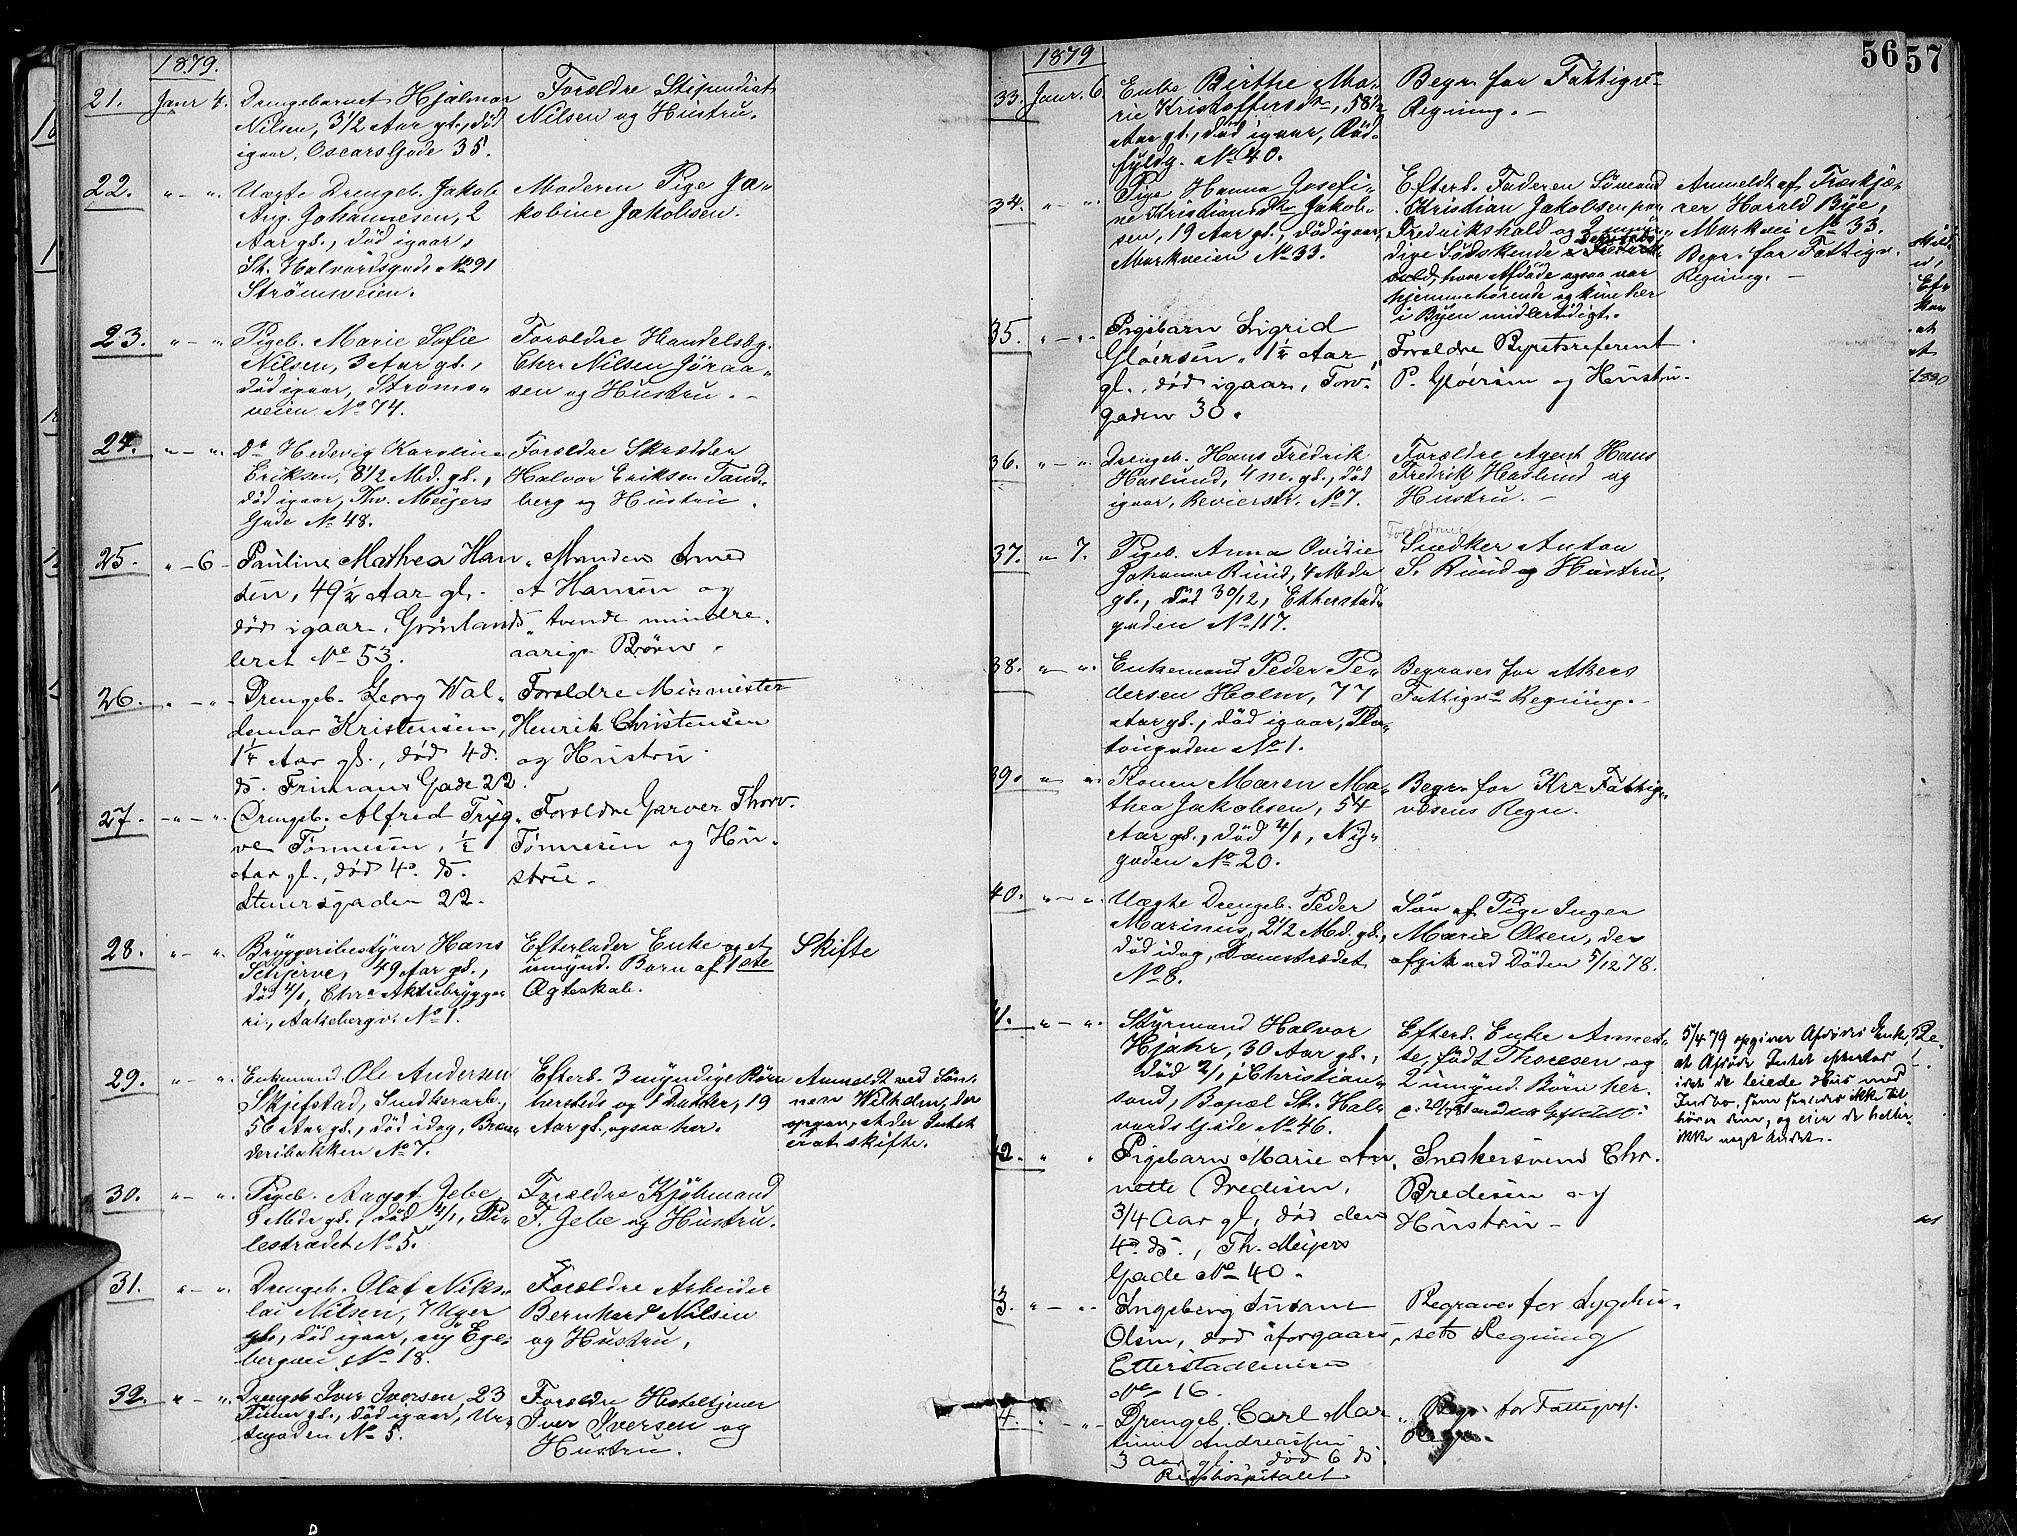 1879.
21. Janr 4. Drengebarnet Hjalmar
Nilsen, 3 1/2 Aar gl., død
igaar, Oscars Gade 35.
Forældre Stipendiat
Nilsen og Hustru.
22. " - " Uægte Drengeb. Jakob
Aug. Johannesen, 2
Aar gl., død igaar,
St. Halvardsgade No 91
Strømsveien.
Moderen Pige Ja-
kobine Jakobsen.
23. " - " Pigeb. Marie Sofie
Nilsen, 3 Aar gl.,
død igaar, Strøms-
veien No 74.
Forældre Handelsbg.
Chr. Nilsen Jøraa-
sen og Hustru. -
24. " - " Do Hedevig Karoline
Eriksen, 8 1/2 Md. gl.,
død igaar, Thv. Meijers
Gade No 48.
Forældre Skrædder
Halvor Eriksen Tand-
berg og Hustru.
25. " - 6 - Pauline Mathea Han-
sen, 49 1/2 Aar gl.
død igaar, Grønlands
leret No 53.
Manden Amed
A Hansen og
tvende mindre-
aarige Børn.
26. " - " Drengeb. Georg Wal-
demar Kristensen,
1 1/4 Aar gl., død 4 d.
ds. Frimans Gade 22.
Forældre Murmester
Henrik Christensen
og Hustru.
27. " - " Drengeb. Alfred Tryg-
ve Tønnesen, 1/2
Aar gl., død 4de ds.
Stenersgaden 22.
Forældre Garver Thorv.
Tønnesen og Hu-
stru.
28. " - " Bryggeribestyrer Hans
Schjerve, 49 Aar gl.,
død 4/1, Chra Aktiebrygge-
ri, Aakebergv. No 1.
Efterlader Enke og et
umynd. Barn af 1ste
Ægteskab.
Skifte
29. " - " Enkemand Ole Andersen
Skjefstad, Snedkerarb.,
56 Aar gl., død idag, Bræn-
deribakken No 7.
Efterl. 3 myndige Børn
hersteds og 1 Datter, 19
Aar gl., ogsaa her.
Anmeldt ved Søn-
nen Wilhelm, der
opgav, at der Intet
er at skifte.
30. " - " Pigeb. Aagot Jebe,
8 Mdr gl., død 4/1, Pi-
lestrædet No 5.
Forældre Kjøbmand
T. Jebe og Hustru.
31. " - " Drengeb. Olaf Niko-
lai Nilsen, 7 Uger
gl., død igaar, ny Ege-
bergveien No 18.
Forældre Arbeider
Bernhard Nilsen
og Hustru,
32. " - " Drengeb. Iver Iversen, 23
Timer gl., død igaar, Ur-
tegaden No 5.
Forældre Hotelstjener
Iver Iversen og
Hustru.
56 57
1879
33. Janr. 6 Enke Birthe Ma-
rie Kristoffersdr, 58 1/2
Aar gl., død igaar, Rød-
fyldg. No 40.
Begr. for Fattigvs
Regning. -
34. " - " Pige Hanna Josefi-
ne Kristiansdr Jakob-
sen, 19 Aar gl., død igaar,
Markveien No 33.
Efterl. Faderen Sømand
Christian Jakobsen paa
Fredrikshald og 2 myn-
dige Sødskende
hvor Afdøde ogsaa var
hjemmehørende og kun her
i Byen midlertidigt.
Anmeldt af Træskjæ-
rer Harald Bye,
Markvei No 33.
Begr. for Fattigv.
Regning. -
35. " - " Pigebarn Sigrid
Gløersen, 1 1/4 Aar
gl., død igaar, Torv-
gaden 30.
Forældre Byretsreferent
P. Gløersen og Hustru.
36. " - " Drengeb. Hans Fredrik
Haslund, 4 m. gl., død
igaar, Revierstr. No 7.
Forældre Agent Hans
Fredrik Haslund og
Hustru. -
37. " 7. Pigeb. Anna Ovidie
Johanne Ruud, 4 Mdr
gl., død 30/12, Etterstad-
gaden No 117.
Forældrene
Snedker Anton
S. Ruud og Hustru.
38. " - " Enkemand Peder Pe-
dersen Holm, 77
Aar gl., død igaar, Pla-
tougaden No 1.
Begraves for Akers
Fattigvs Regning. -
39. " " Konen Maren Ma-
thea Jakobsen, 54
Aar gl., død 4/1, Ny-
gaden No 20.
Begr. for Kra Fattig-
væsens Regn.
40. " - " Uægte Drengeb. Peder
Marinus, 2 1/2 Md. gl.,
død idag, Damstrædet
No 8.
Søn af Pige Inger
Marie Olsen, der
afgik ved Døden 5/12 78.
41. " - " Styrmand Halvor
Hjahr, 30 Aar gl.,
død 2/1 i Christian-
sand, Bopæl St. Hal-
vards Gade No 46.
Efterl. Enke Annet-
te, født Thoresen og
2 umynd. Børn her.
5/4 79 opgiver Afdødes Enke,
at Afdøde Intet efterlod
idet de leiede Hus med
Indbo, som saaledes ikke til-
hører dem, og eier de heller
ikke noget Andet.
42. " " Pigebarn Marie An-
nette Bredesen,
3/4 Aar gl., død den
4de ds., Th. Meijers
Gade No 40.
Snekersvend Chr.
Bredesen og
Hustru -
3. " - " Ingeborg Susane
Olsen, død iforgaars,
Etterstadveien
No 16.
Begraves for Sygehu-
sets Regning
4. " - " Drengeb. Carl Mar-
tinius Andreassen
3 Aar gl. død 6 ds.
Rigshospitalet
Begr for Fattigvs.
Regn.